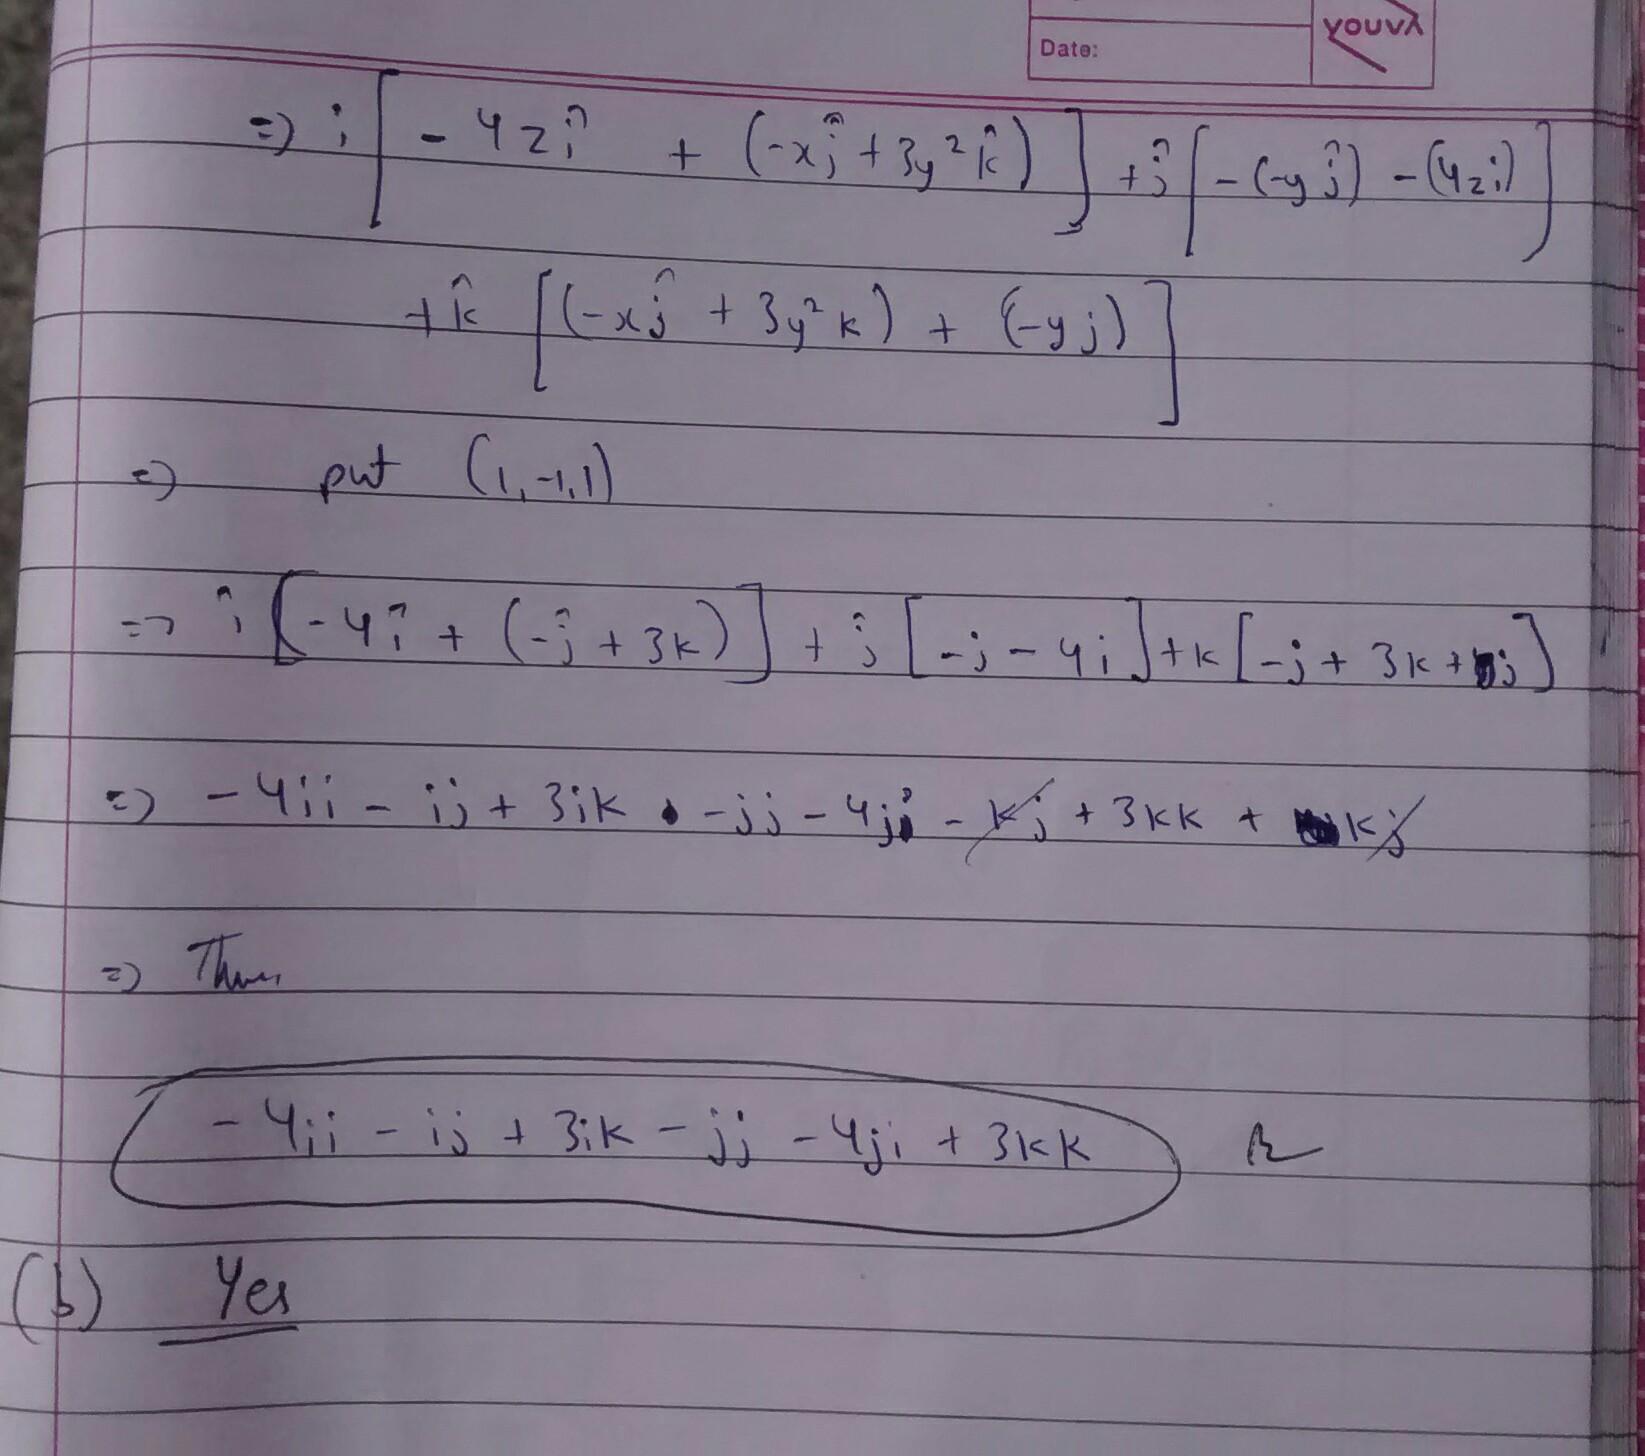 Date:
YOUVA
=> i [ - 4zî + (-xĵ + 3y²k̂) ] + ĵ [ - (-yĵ) - (4zi) ]
+ k̂ [ (-xĵ + 3y²k) + (-yj) ]
=> put (1,-1,1)
=> î [ -4î + (-ĵ + 3k) ] + j [ -j - 4i ] + k [ -j + 3k + j ]
=> - 4ii - ij + 3ik - jj - 4ji - kj + 3kk + kj
=> Thus
- 4ii - ij + 3ik - jj - 4ji + 3kk
(b) Yes